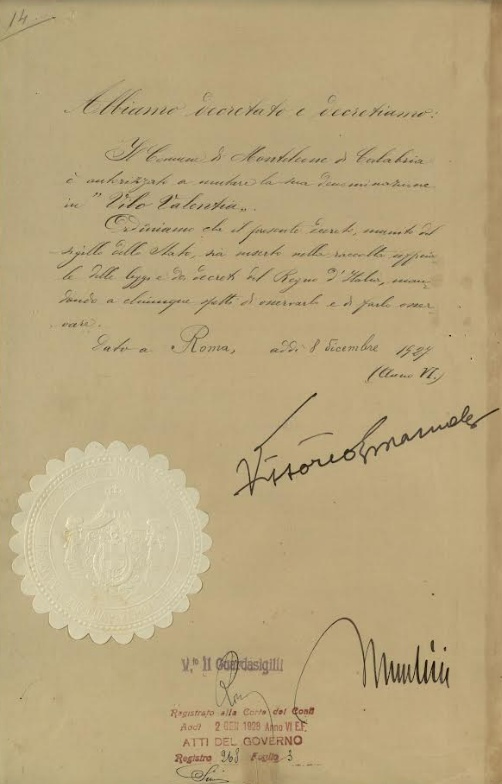 14
Abbiamo decretato e decretiamo:
Il Comune di Monteleone di Calabria
è autorizzato a mutare la sua denominazione
in "Vibo Valentia„.
Ordiniamo che il presente decreto, munito del
sigillo dello Stato, sia inserto nella raccolta ufficia
le delle leggi e dei decreti del Regno d'Italia, man
dando a chiunque spetti di osservarlo e di farlo osser
vare.
Dato a Roma, addì 8 dicembre 1927
(Anno VI.)
Vittorio Emanuele
Mussolini
V.to Il Guardasigilli
Rocco
Registrato alla Corte dei Conti
Addì 2 GEN 1928 Anno VI E.F.
ATTI DEL GOVERNO
Registro 268 Foglio 3